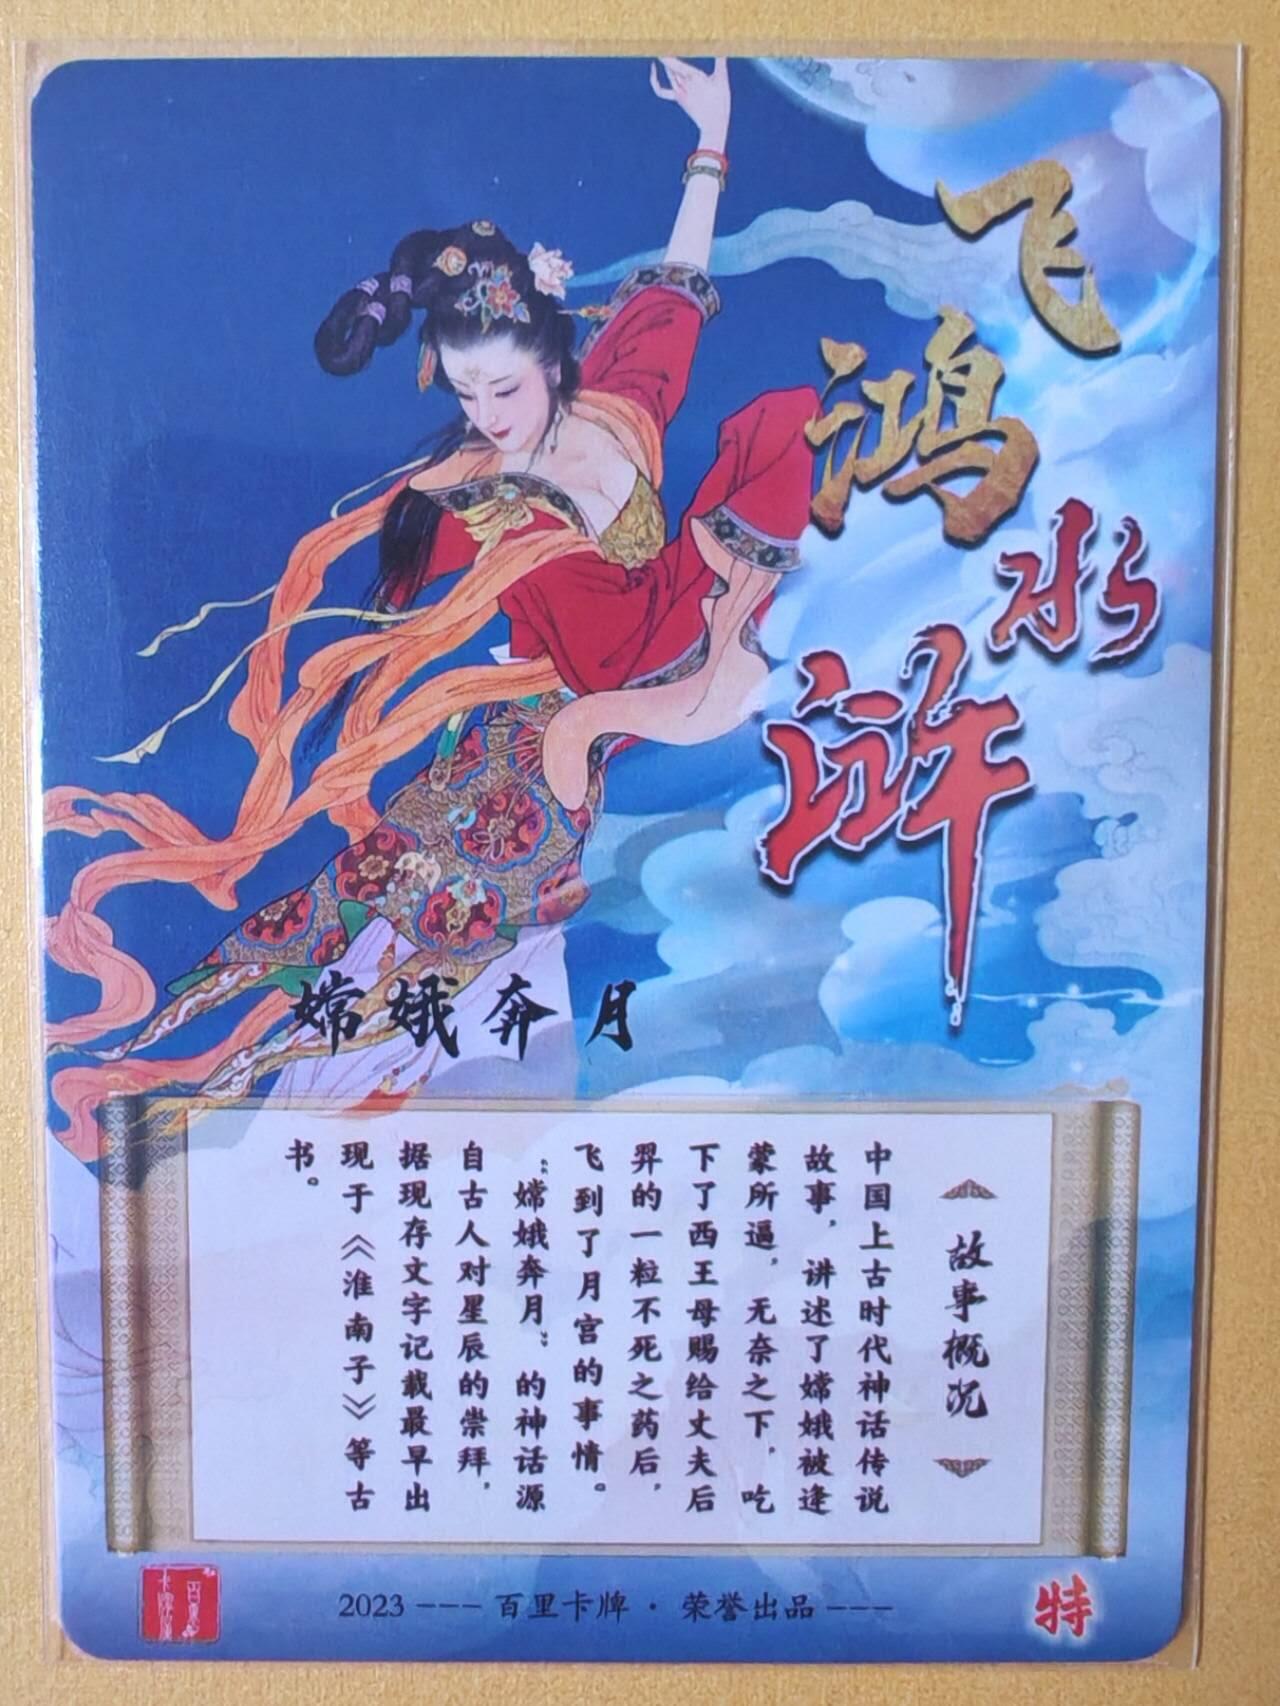 飞鸿
水浒
嫦娥奔月
故事概况
中国上古时代神话传说
故事，讲述了嫦娥被逢
蒙所逼，无奈之下，吃
下了西王母赐给丈夫后
羿的一粒不死之药后，
飞到了月宫的事情。
“嫦娥奔月”的神话源
自古人对星辰的崇拜，
据现存文字记载最早出
现于《淮南子》等古
书。
百里
卡牌
2023 --- 百里卡牌 · 荣誉出品 ---
特